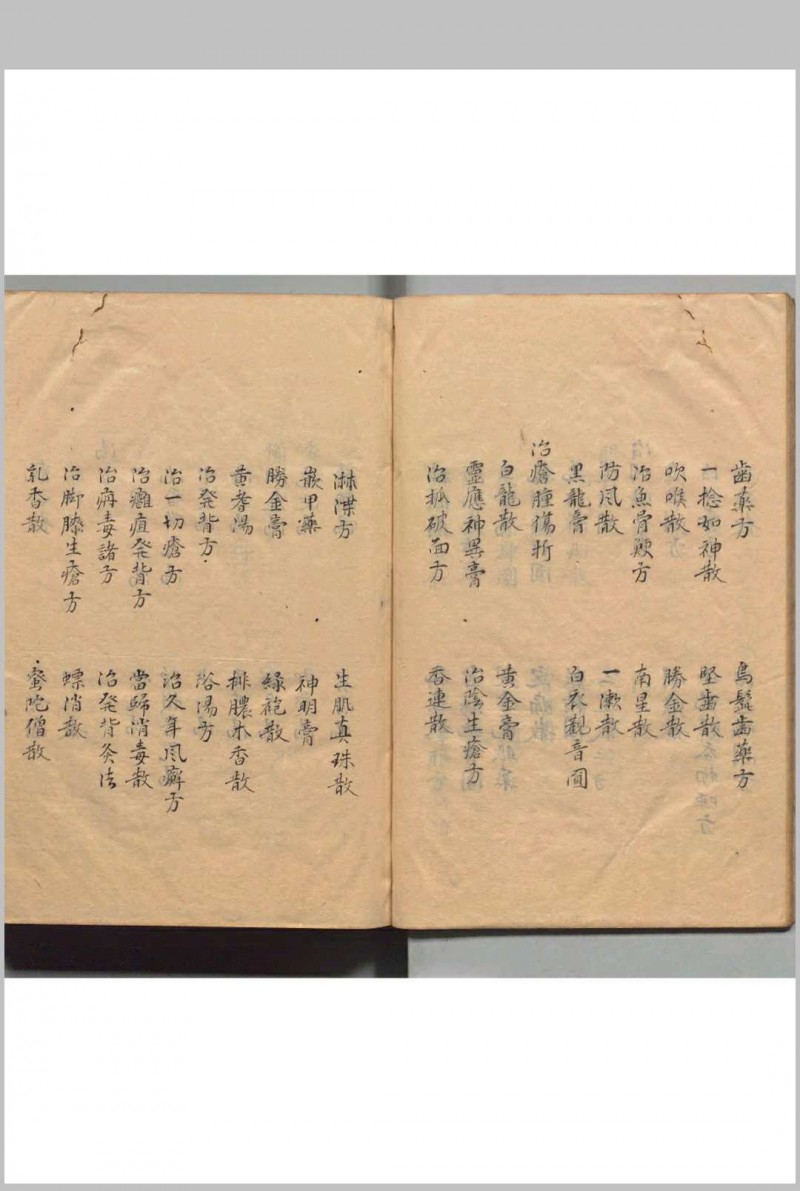 齒藥方
烏髭齒藥方
一捻如神散
堅齒散
吹喉散
勝金散
治魚骨鯁方
南星散
防风散
一漱散
黑龍膏
白衣觀音圓
治瘡腫傷折
白龍散
黄金膏
靈應神異膏
治陰生瘡方
治抓破面方
香連散
淋渫方
生肌真珠散
嵌甲藥
神明膏
勝金膏
綠袍散
黄耆湯
排膿木香散
治発背方
浴湯方
治一切瘡方
治久年风癬方
治癰疽発背方
當歸消毒散
治痈毒諸方
治発背灸法
治脚膝生瘡方
螵消散
乳香散
蜜陀僧散